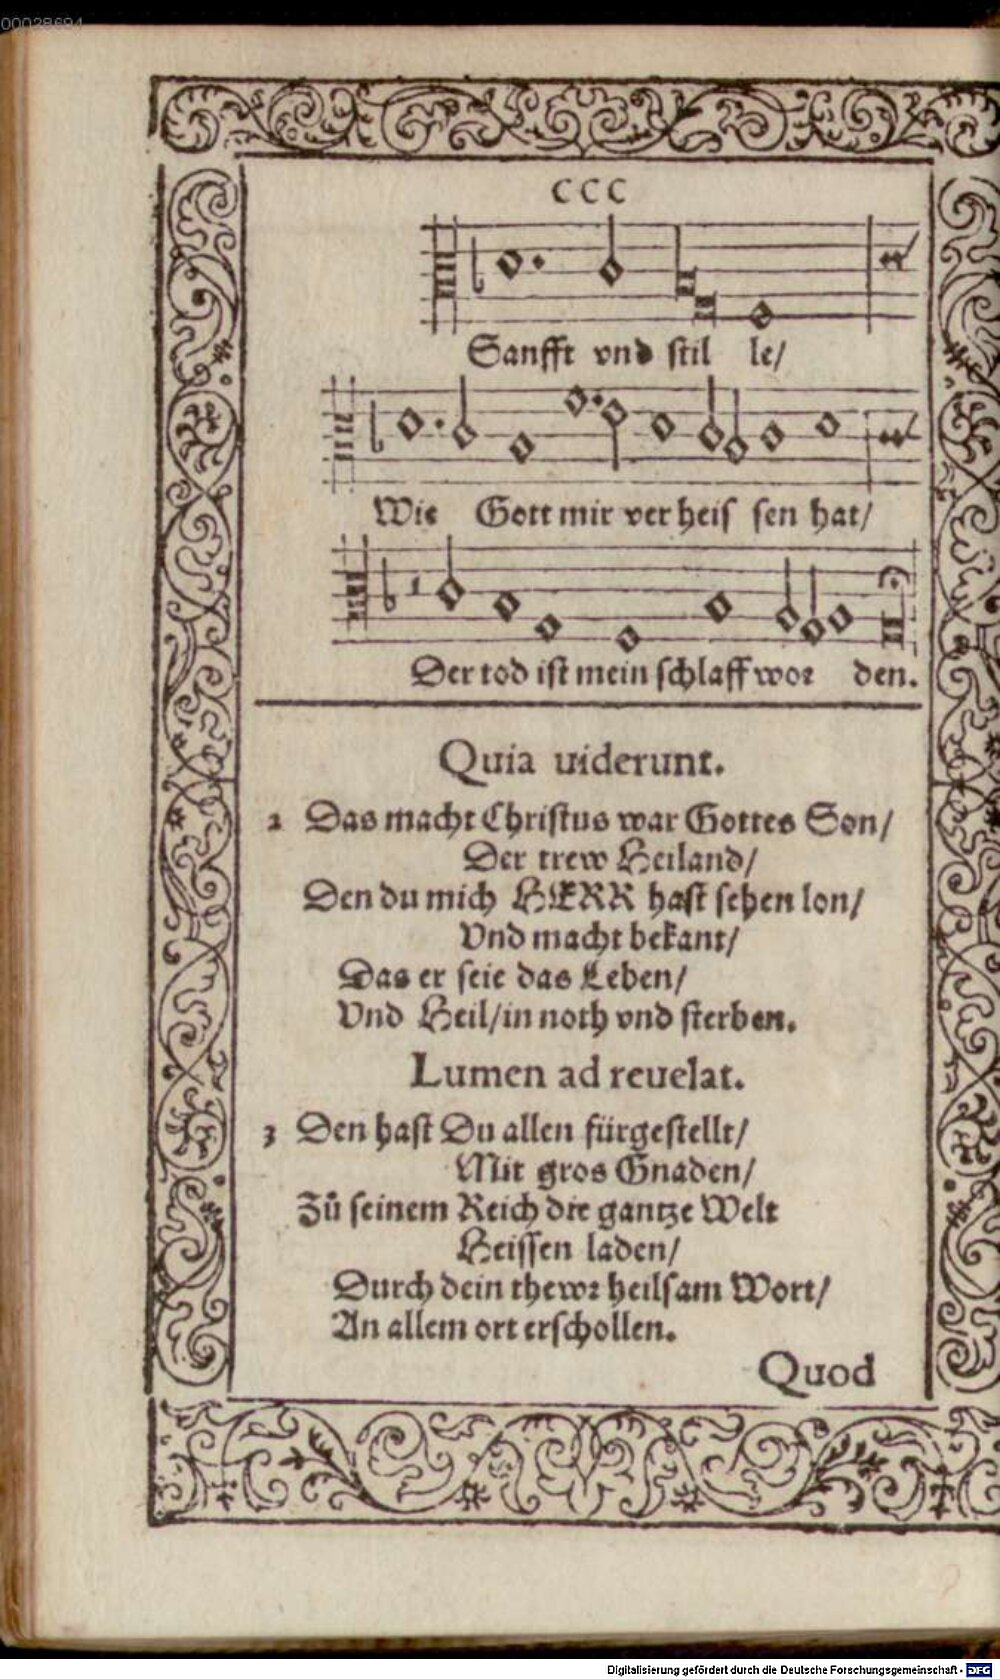 00028694
CCC
Sanfft vnd stil le/
Wie Gott mir ver heis sen hat/
Der tod ist mein schlaff wor den.
Quia uiderunt.
2 Das macht Christus war Gottes Son/
Der trew Heiland/
Den du mich HERR hast sehen lon/
Vnd macht bekant/
Das er seie das Leben/
Vnd Heil/in noth vnd sterben.
Lumen ad reuelat.
3 Den hast Du allen fürgestellt/
Mit gros Gnaden/
Zů seinem Reich die gantze Welt
Heissen laden/
Durch dein thewr heilsam Wort/
An allem ort erschollen.
Quod
Digitalisierung gefördert durch die Deutsche Forschungsgemeinschaft - DFG